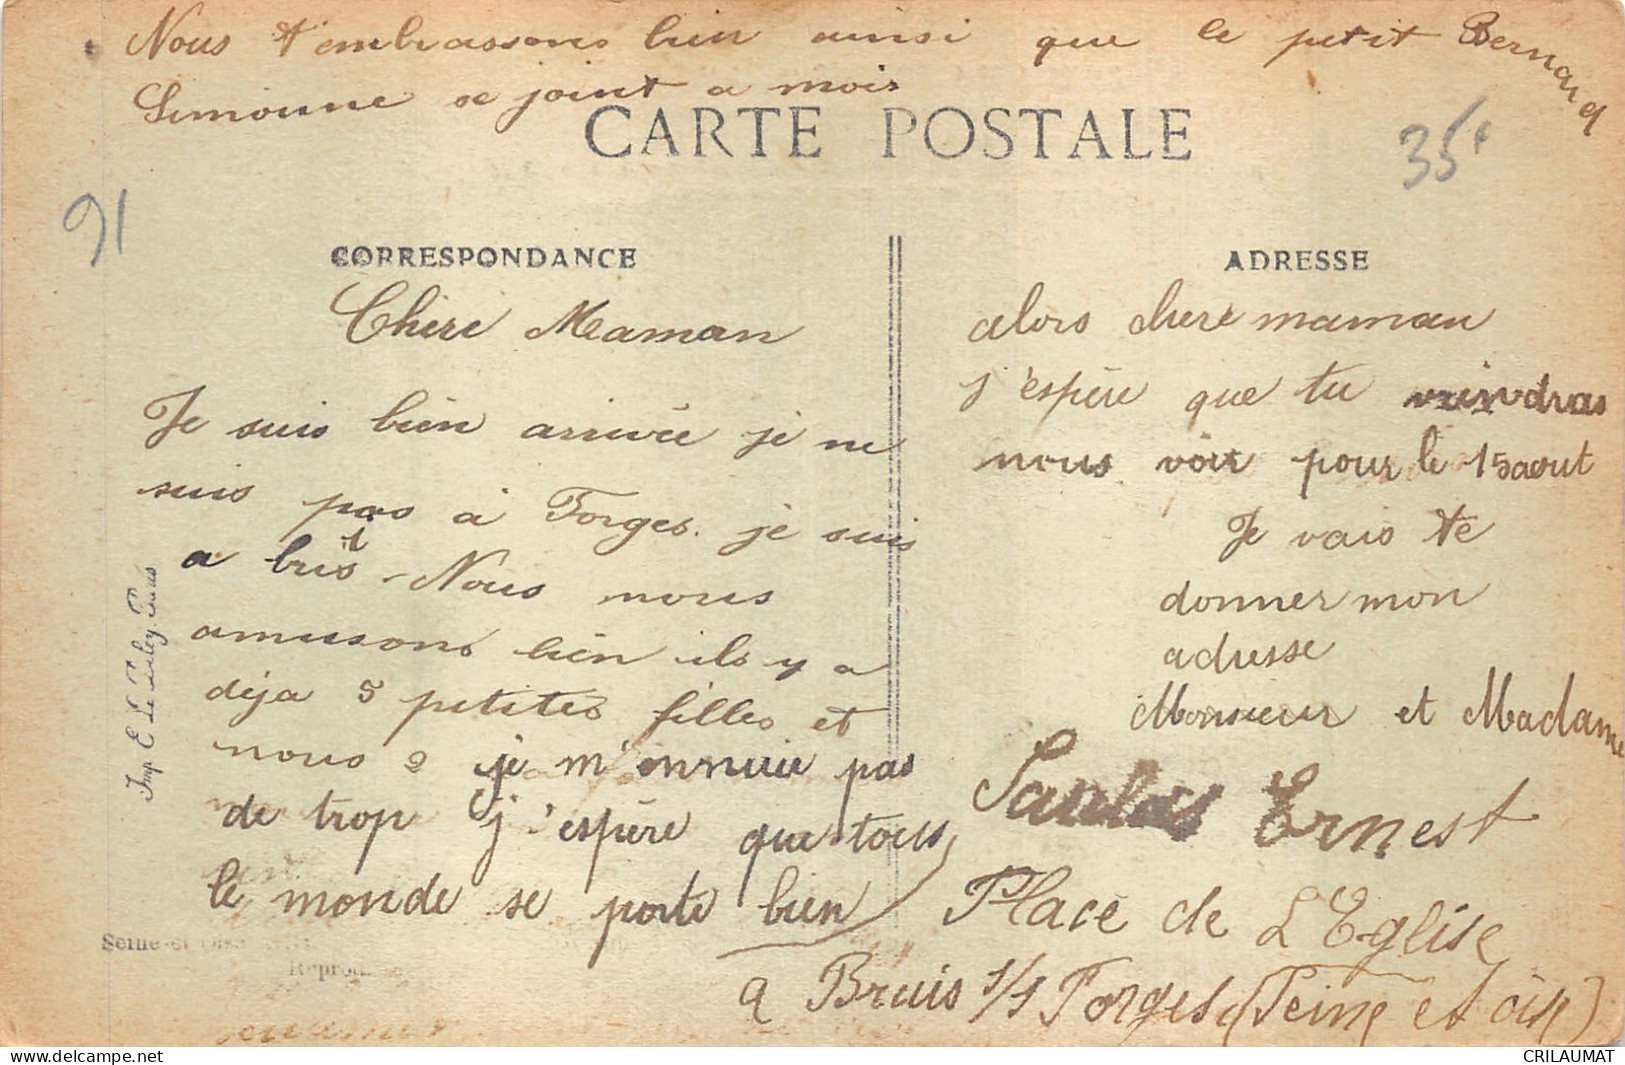 Nous t'embrassons bien ainsi que le petit Bernard
Simonne se joint a mois
CARTE POSTALE
35f
91
CORRESPONDANCE
ADRESSE
Chere Maman
Je suis bien arrivée je ne
suis pas à Forges. je suis
a bris - Nous nous
amusons bien ils y a
déja 5 petites filles et
nous 2 je m'ennuie pas
de trop j'espère que tous
le monde se porte bien
alors chere maman
j'espère que tu viendras
nous voir pour le 15 aout
Je vais te
donner mon
adresse
Monsieur et Madame
Ernest
Place de L'Eglise
a Bruis s/s Forges (Seine et oise)
Imp E. Le Deley Paris
Seine-et-Oise
CRILAUMAT